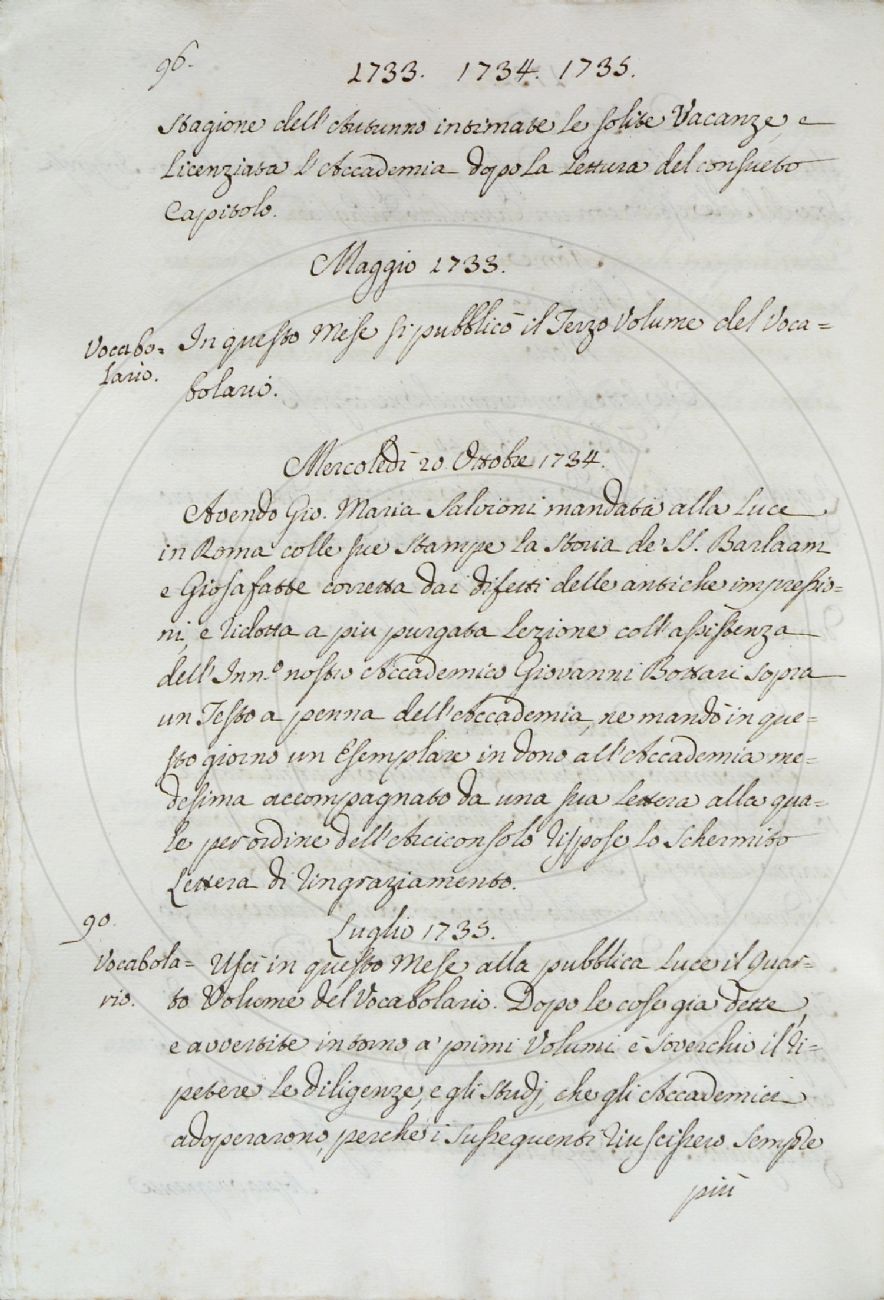 96.
1733. 1734. 1735.
Stagione dell'Autunno intimate le solite Vacanze, e
Licenziata l'Accademia dopo la Lettura del consueto
Capitolo.
Maggio 1733.
Vocabo=
lario.
In questo Mese si pubblicò il Terzo Volume del Voca=
bolario.
Mercoledì 20. Ottobre 1734.
Avendo Gio. Maria Salvioni mandata alla Luce
in Roma colle sue Stampe la Storia de' SS. Barlaam
e Giosafatte corretta dai difetti delle antiche impressio=
ni, e ridotta a più purgata Lezione coll'assistenza
dell'Inn.º nostro Accademico Giovanni Bottari sopra
un Testo a penna dell'Accademia, ne mandò in que=
sto giorno un Esemplare in dono all'Accademia me=
desima accompagnato da una sua Lettera alla qua=
le per ordine dell'Arciconsolo rispose lo Schermito
Lettera di ringraziamento.
90.
Luglio 1735.
Vocabola=
rio.
Uscì in questo Mese alla pubblica Luce il Quar=
to Volume del Vocabolario. Dopo le cose già dette,
e avvertite intorno a' primi Volumi è soverchio il ri=
petere le diligenze, e gli studj, che gli Accademici
adoperarono, perchè i susseguenti riuscissero sempre
più